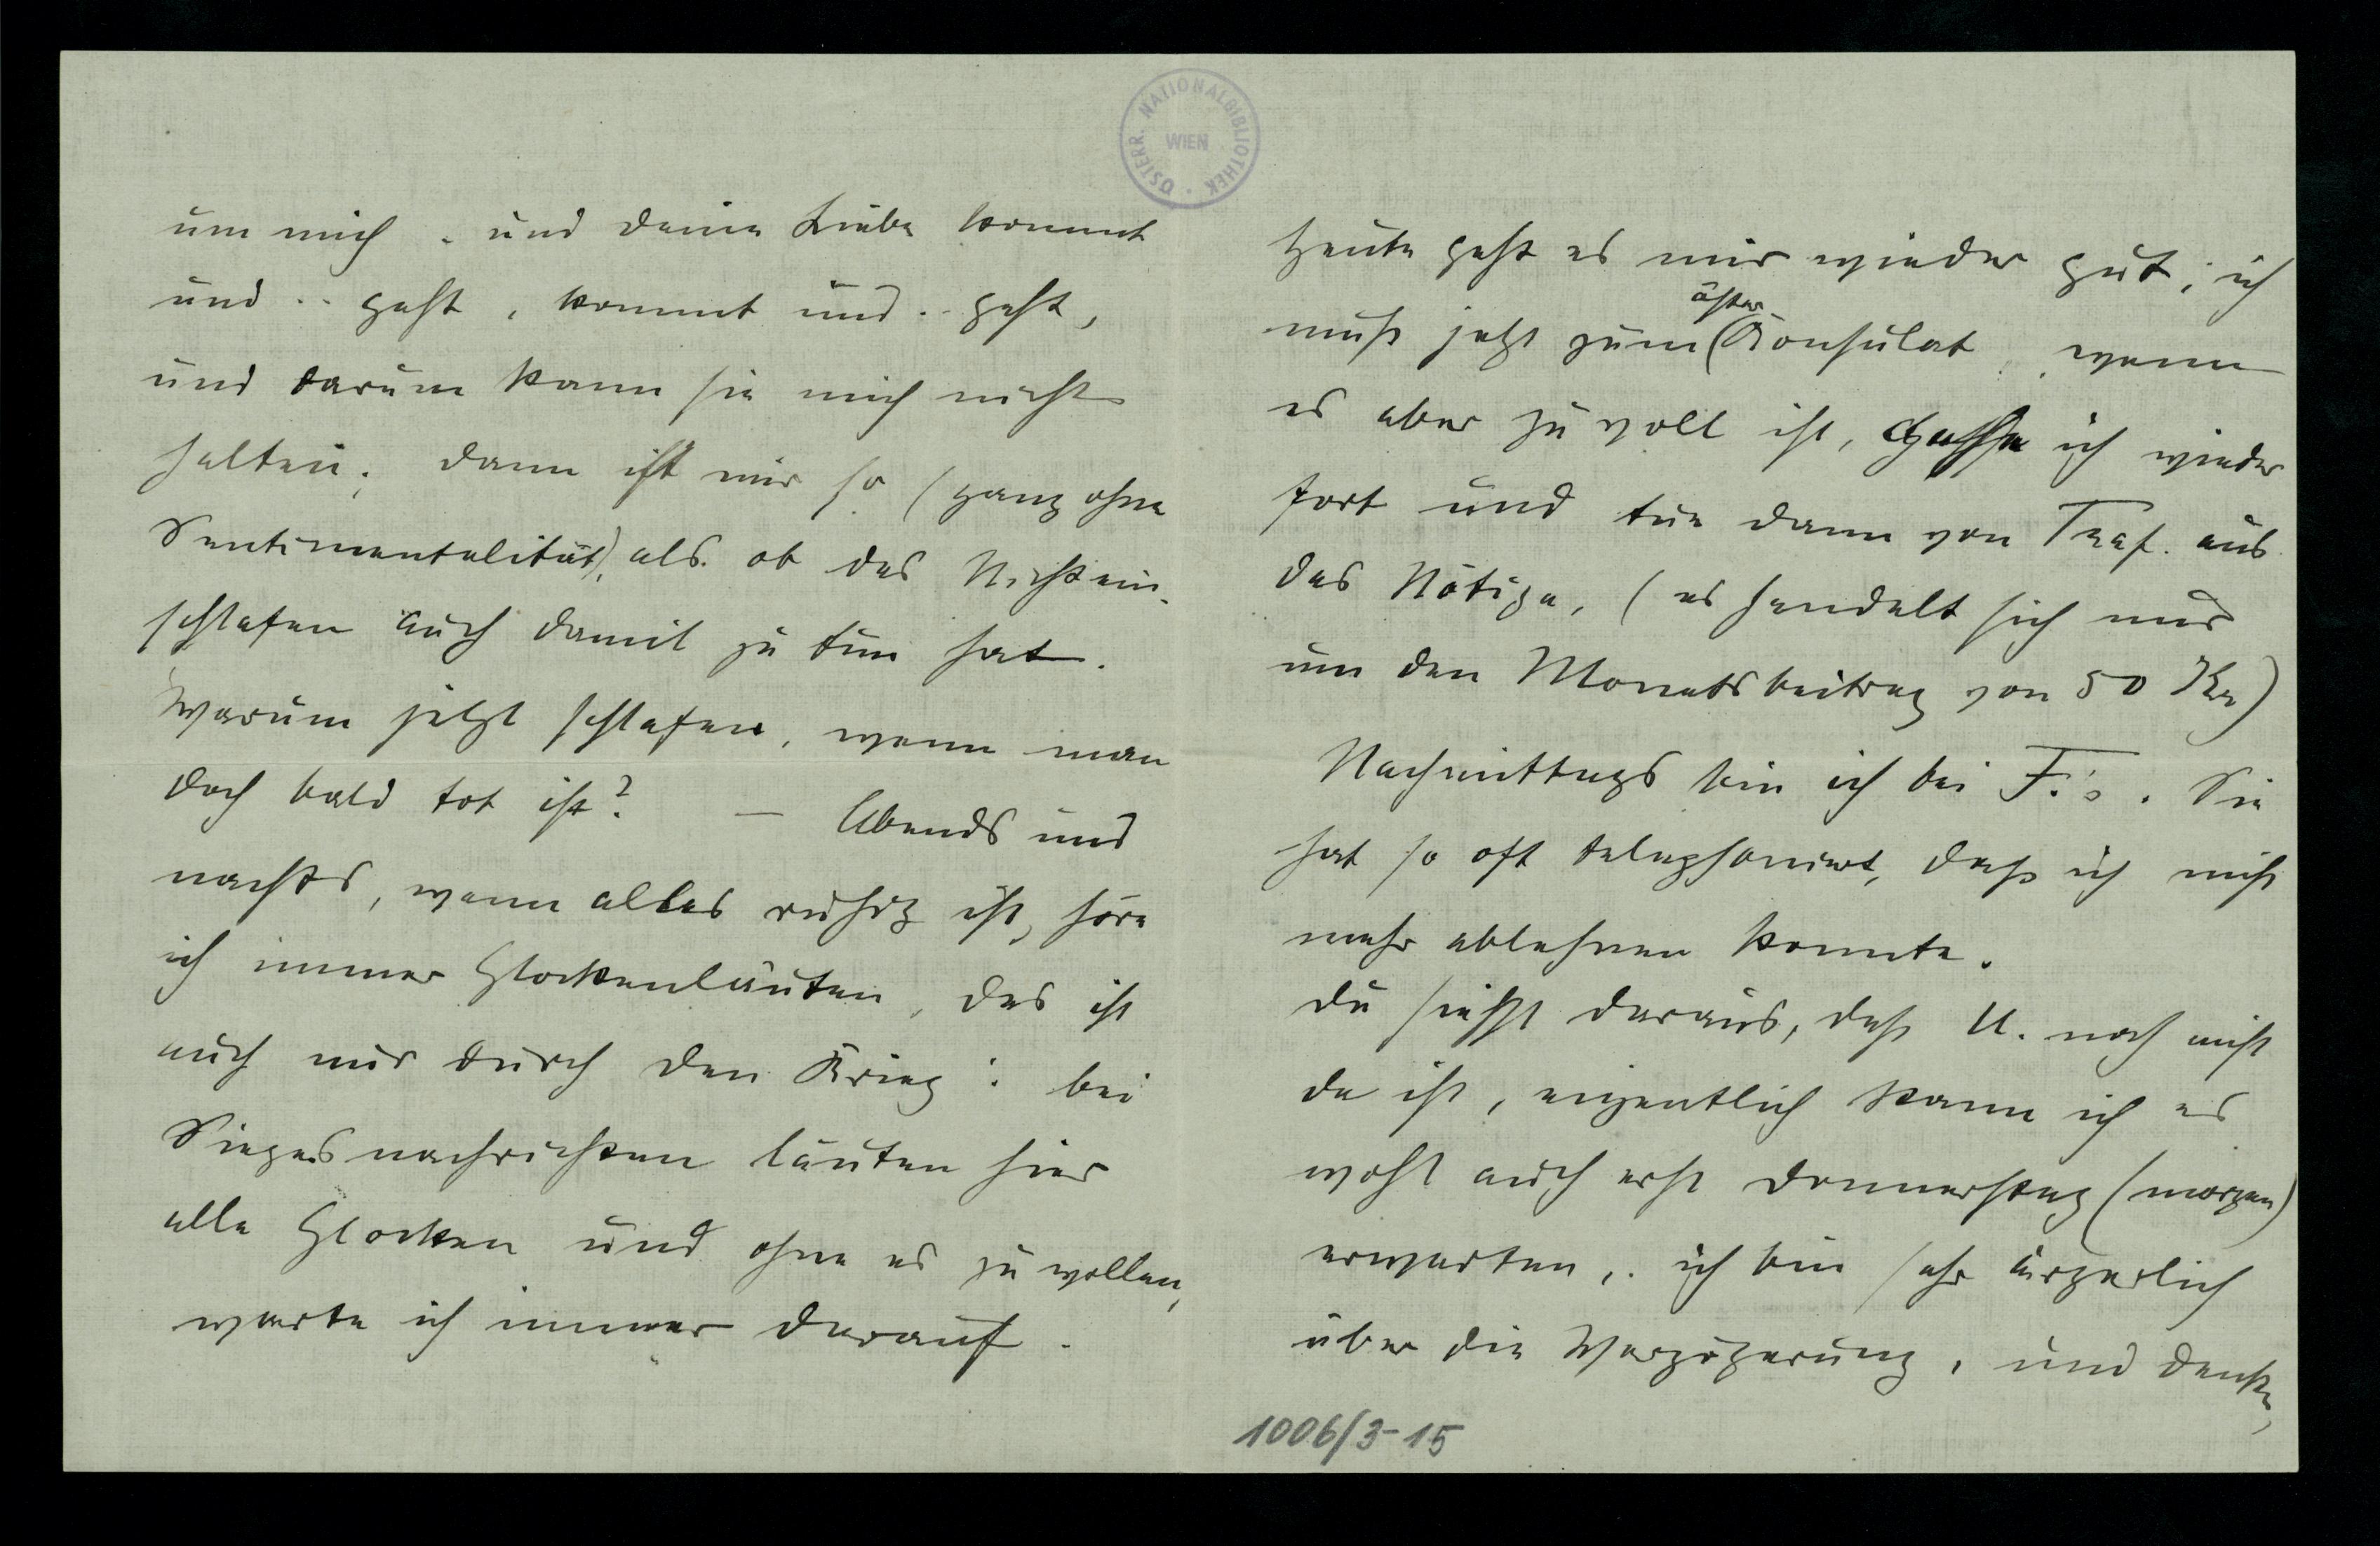 um mich . und deine Liebe kommt
und .. geht , kommt und .. geht ,
und darum kann sie mich nicht
halten; dann ist mir so (ganz ohne
Sentimentalität), als ob das Nichtein-
schlafen auch damit zu tun hat.
Warum jetzt schlafen, wenn man
doch bald tot ist? — Abends und
nachts, wenn alles ruhig ist, höre
ich immer Glockenläuten, das ist
auch nur durch den Krieg: bei
Siegesnachrichten läuten hier
alle Glocken und ohne es zu wollen,
warte ich immer darauf.
Heute geht es mir wieder gut; ich
muß jetzt zum (öster Konsulat, wenn
es aber zu voll ist, gehe ich wieder
fort und tue dann von aus
das Nötige, (es handelt sich nur
um den Monatsbeitrag von 50 Kr)
Nachmittags bin ich bei F.'s. Sie
hat so oft telephoniert, daß ich nicht
mehr ablehnen konnte.
Du siehst daraus, daß U. noch nicht
da ist, eigentlich kann ich es
wohl auch erst Donnerstag (morgen)
erwarten, ich bin sehr ärgerlich
über die Verzögerung, und denke,
1006/3-15
ÖSTERR. NATIONALBIBLIOTHEK · WIEN